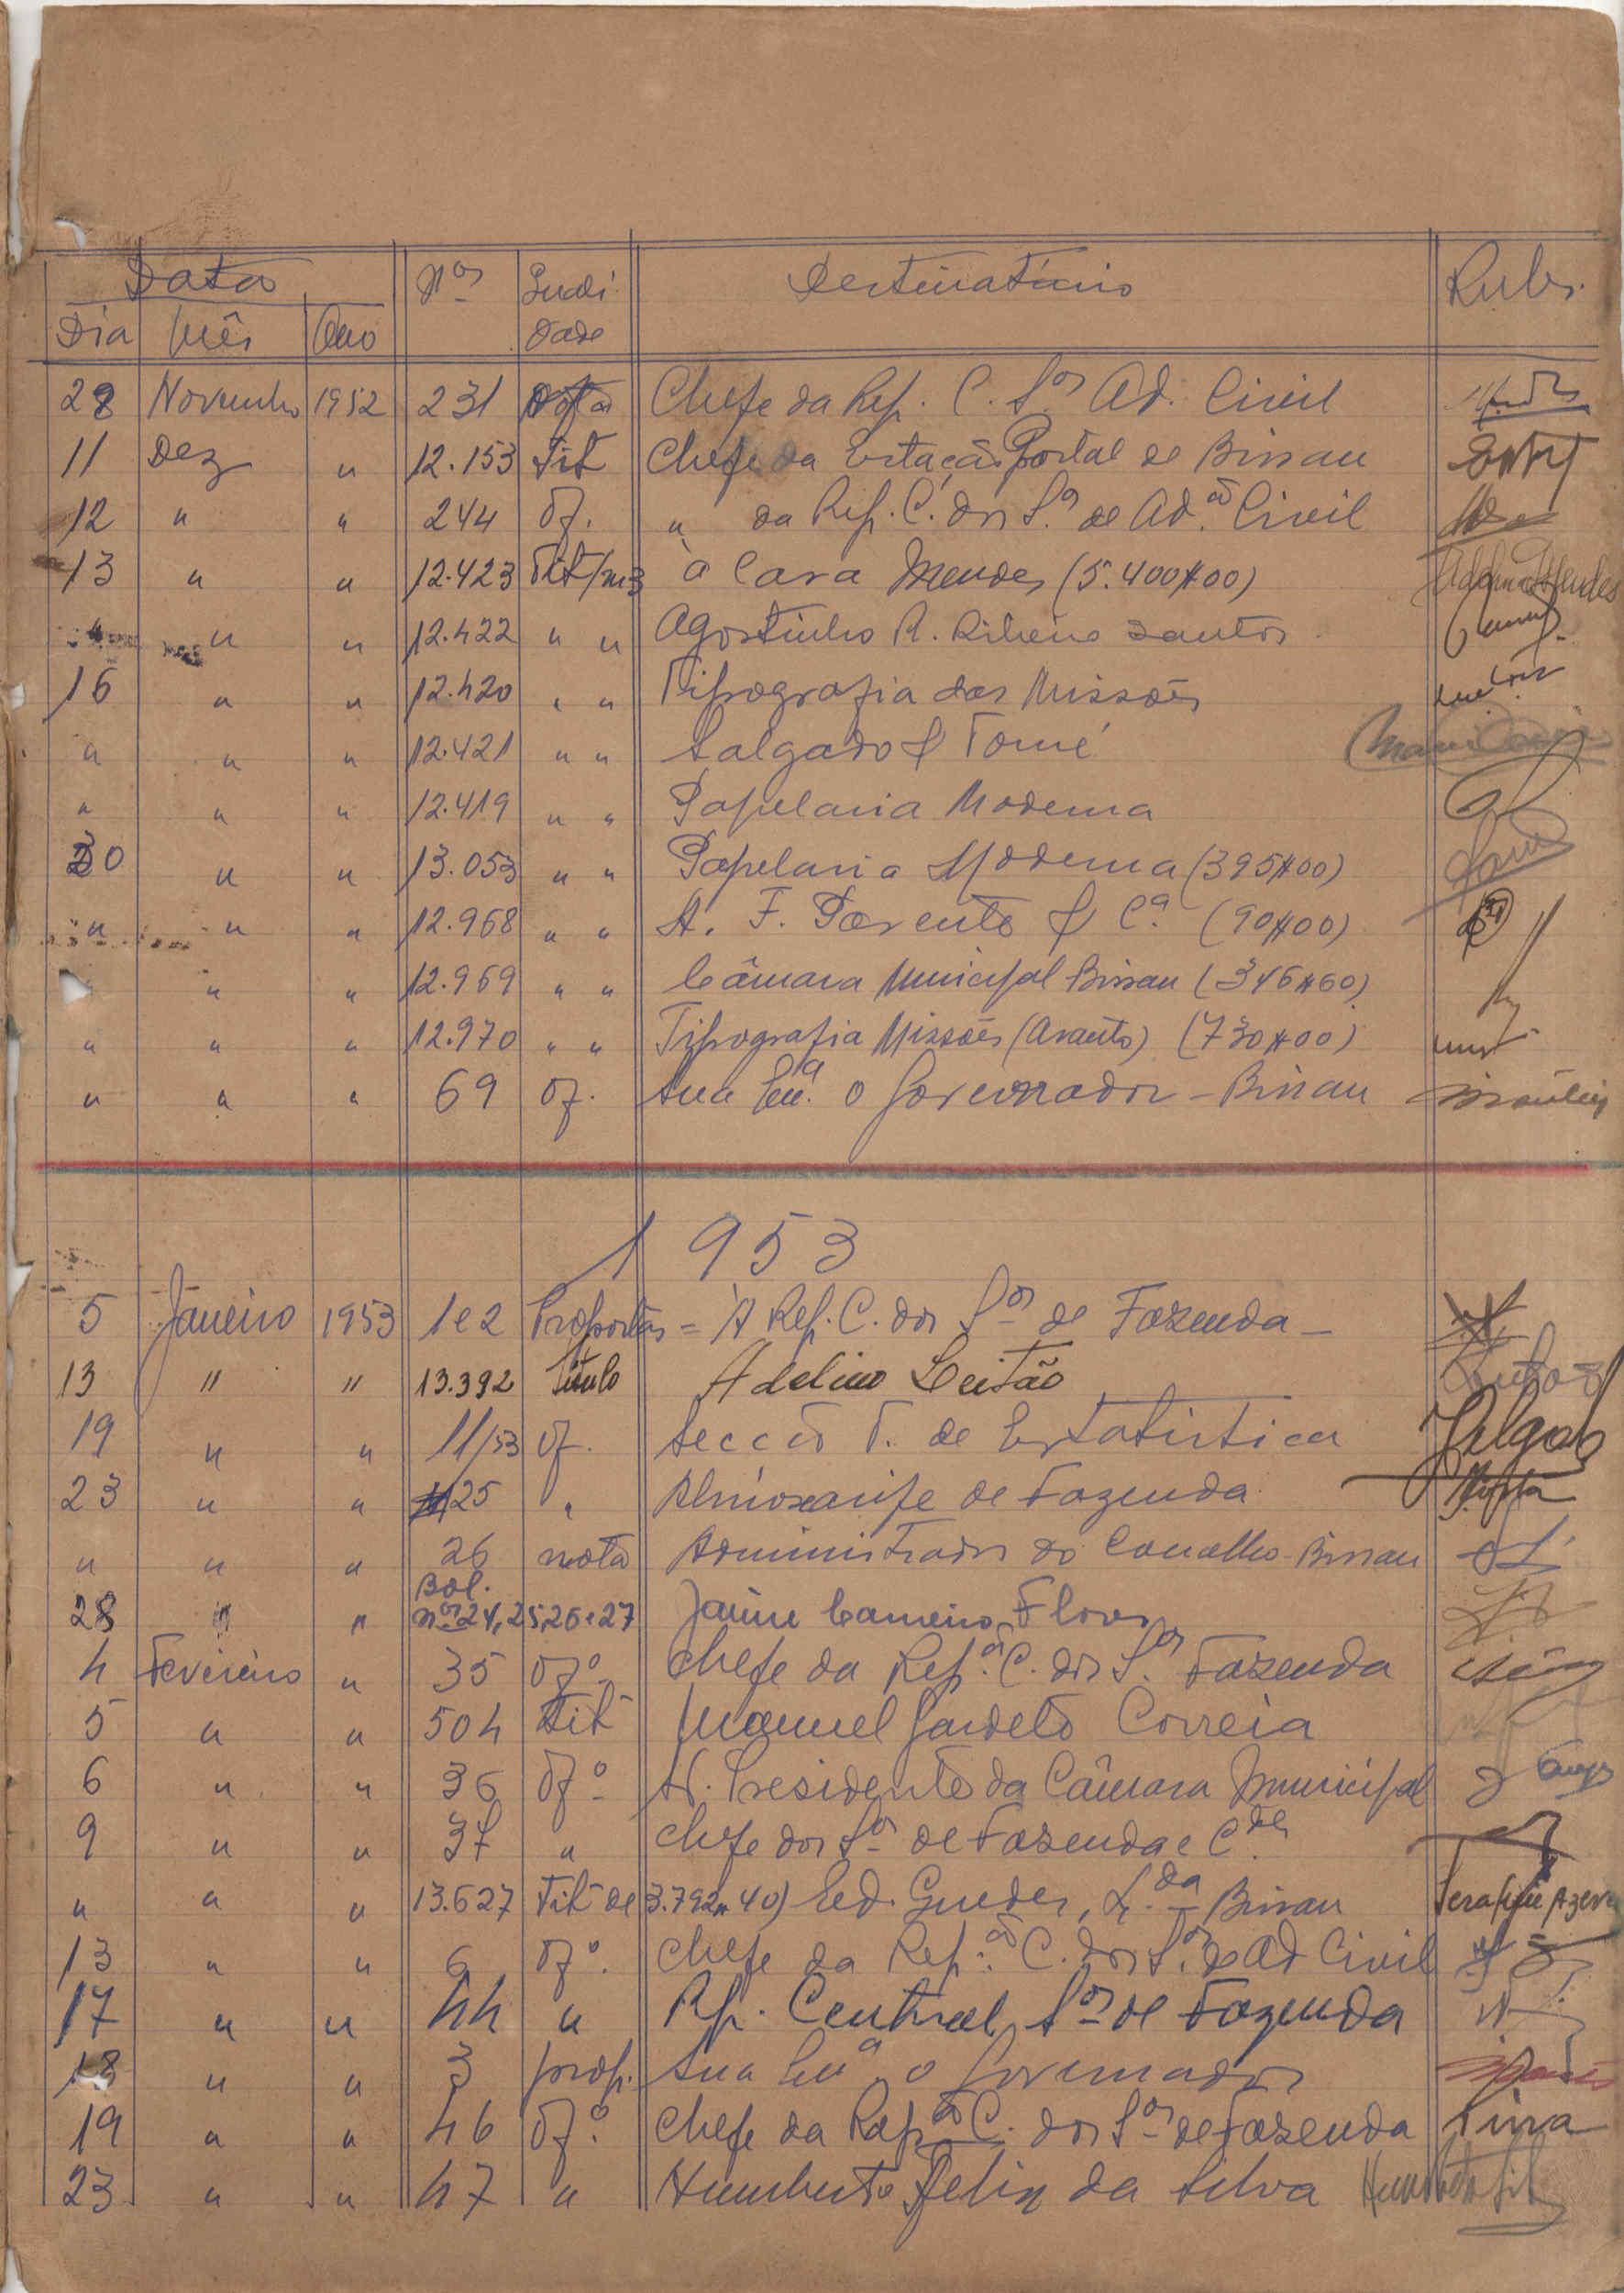 Data Nos Destinatário Rubr.
Dia Mês Ano dade
28 Novembro 1952 231 Chefe da Rep. C. Sos Ad. Civil
11 Dez " 12.153 Tit Chefe da Estação Postal de Bissau
12 " " 244 Of. " da Rep. C. dos S. de Ad.ão Civil
13 " " 12.423 Tit/m3 à Casa Mendes (5.400$00) Mendes
" " " 12.422 " " Agostinho R. Ribeiro Santos
16 " " 12.420 " " Tipografia das Missões
" " " 12.421 " " Salgado & Tomé
" " " 12.419 " " Papelaria Moderna
30 " " 13.053 " " Papelaria Moderna (395$00)
" " " 12.968 " " A. F. Parente & Cª (90$00)
" " 12.969 " " Câmara Municipal Bissau (346$60)
" " " 12.970 " " Tipografia Missões (Arauto) (730$00)
" " " 69 Of. Sua Exª o Governador - Bissau
1953
5 Janeiro 1953 1 e 2 Propostas = À Rep. C. dos Sos de Fazenda -
13 " " 13.392 Titulo Adelino Leitão Leitão
19 " " 11/53 Of. Secção T. de Estatistica
23 " " 25 " Almoxarife de Fazenda
" " " 26 nota Administrador do Concelho - Bissau
Bol.
28 " " nos 24, 25, 26 e 27 Jaime Carneiro Flores
4 Fevereiro " 35 Ofº Chefe da Rep.ão C. dos Sos Fazenda
5 " " 504 Tit Manuel Gardeto Correia
6 " " 36 Ofº Presidente da Câmara Municipal
9 " " 37 " Chefe dos Sos de Fazenda e Cde
" " " 13.627 Tit de 3.792$40) Ed. Guedes, L.da - Bissau Serafim
13 " " 6 Ofº. Chefe da Rep.ão C. dos Sos de Ad Civil
17 " " 44 " Rep. Central Sos de Fazenda
18 " " 3 prop. Sua Exª o Governador
19 " " 46 Ofº. Chefe da Rep.ão C. dos Sos de Fazenda
23 " " 47 " Humberto Felix da Silva Humberto